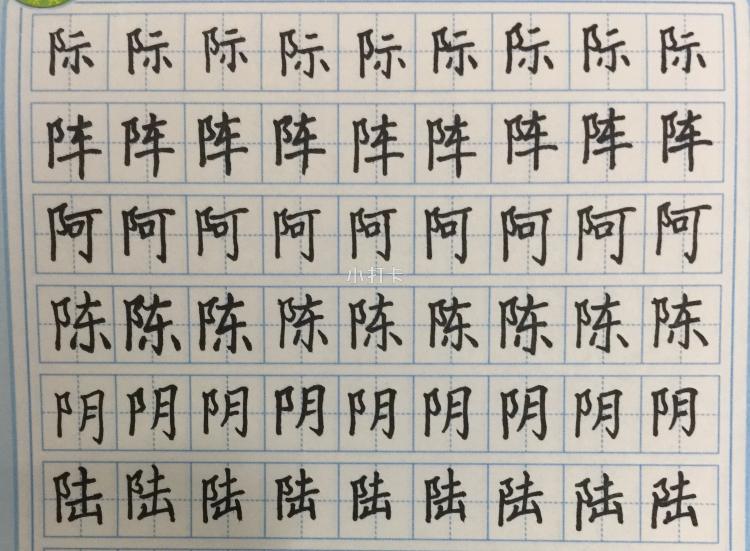 际际际际际际际际际
阵阵阵阵阵阵阵阵阵
阿阿阿阿阿阿阿阿阿
小打卡
陈陈陈陈陈陈陈陈陈
阴阴阴阴阴阴阴阴阴
陆陆陆陆陆陆陆陆陆